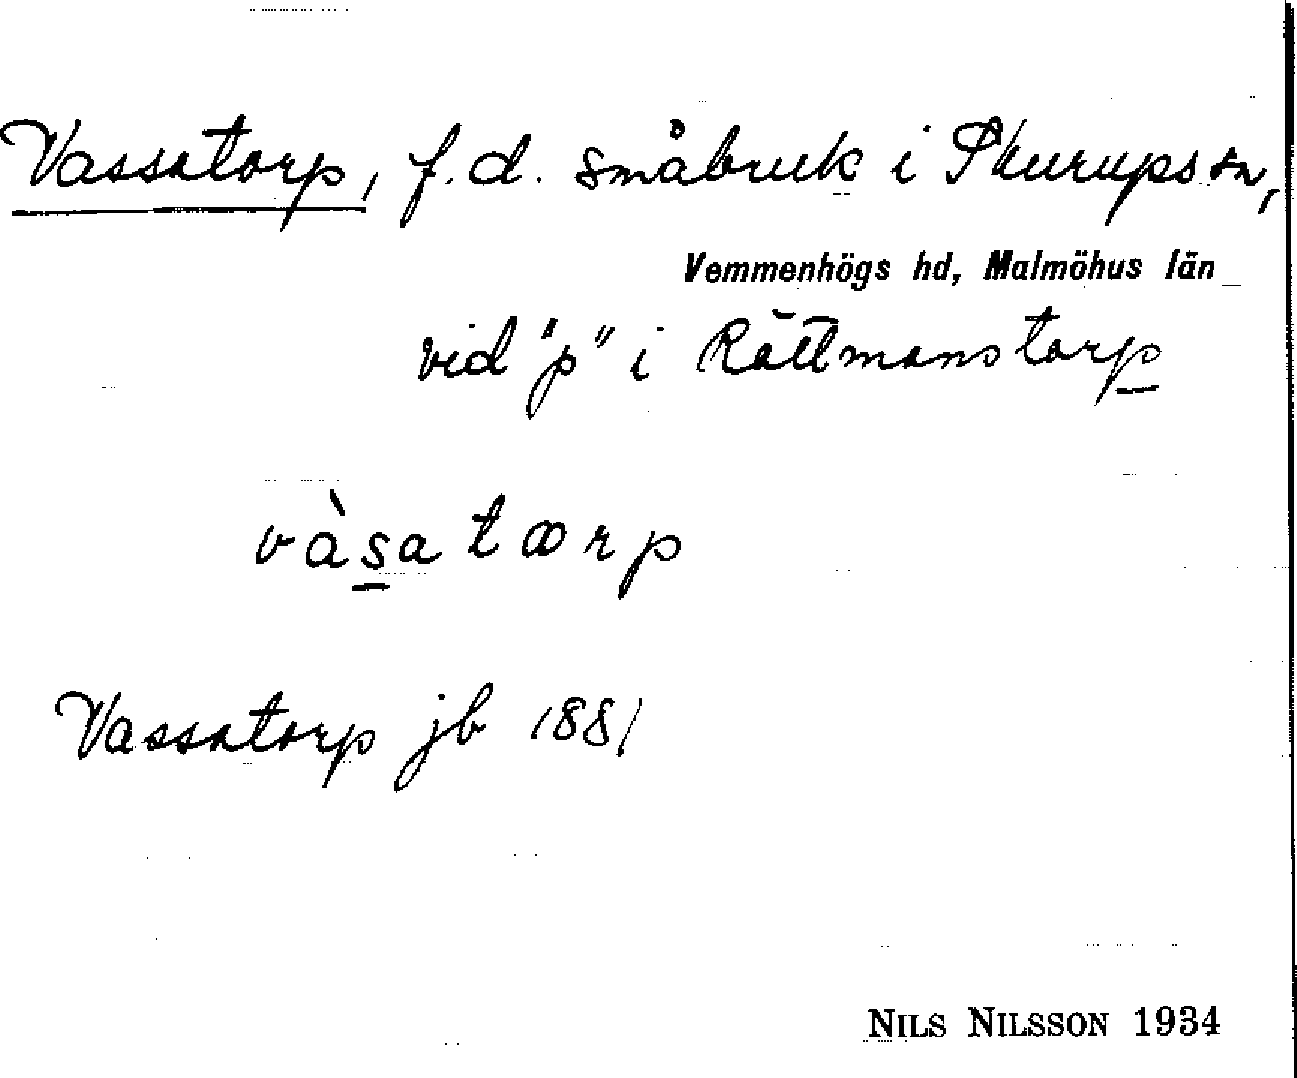 Vassatorp, f.d. småbruk i Skurups sn,
Vemmenhögs hd, Malmöhus län
vid "p" i Rättmanstorp
vàsatꝏrp
Vassatorp jb 1881
NILS NILSSON 1934